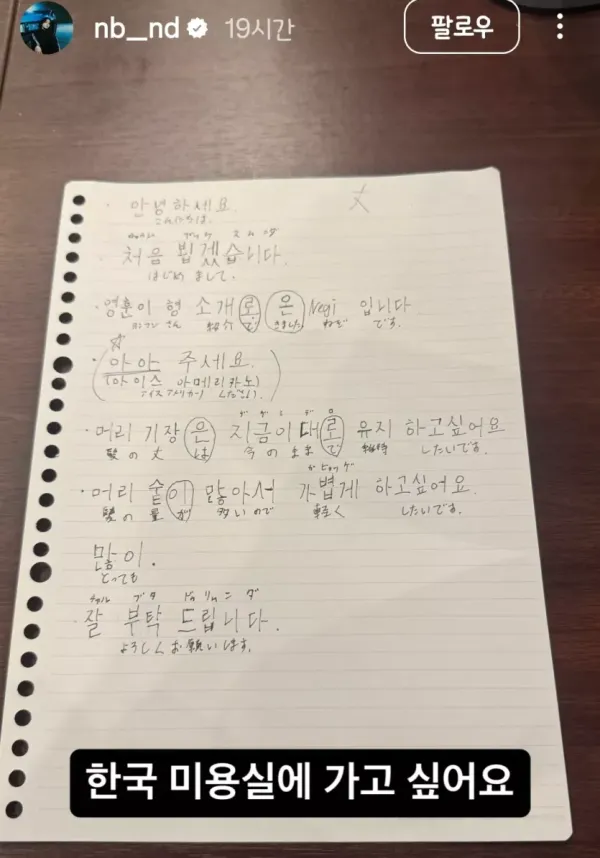 nb_nd 19시간 팔로우
안녕하세요.
こんにちは.
処음 뵙겠습니다.
はじめまして.
・영훈이 형 소개로 온 Negi 입니다
ヨンフン さん 紹介 で きました ねぎ です.
아아 주세요.
(아이스 아메리카노)
アイスアメリカーノ ください.
・머리 기장은 지금이대로 유지 하고싶어요
髪の丈は 今のまま で 維持 したいです.
・머리 숱이 많아서 가볍게 하고싶어요.
髪の量が 多いので 軽く したいです.
많이.
とっても
잘 부탁 드립니다.
よろしくお願いします.
한국 미용실에 가고 싶어요